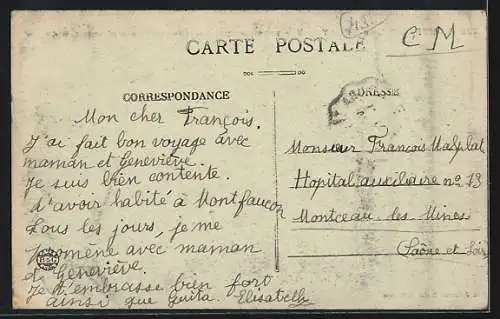 CARTE POSTALE
C M
CORRESPONDANCE
ADRESSE
Mon cher François.
J'ai fait bon voyage avec
maman et Geneviève.
Je suis bien contente
d'avoir habité à Montfaucon
Tous les jours, je me
promène avec maman
et Geneviève.
Je t'embrasse bien fort
ainsi que Guita. Elisabeth
Monsieur François
Hopital auxiliaire no 13
Montceau les Mines
Saône et Loire